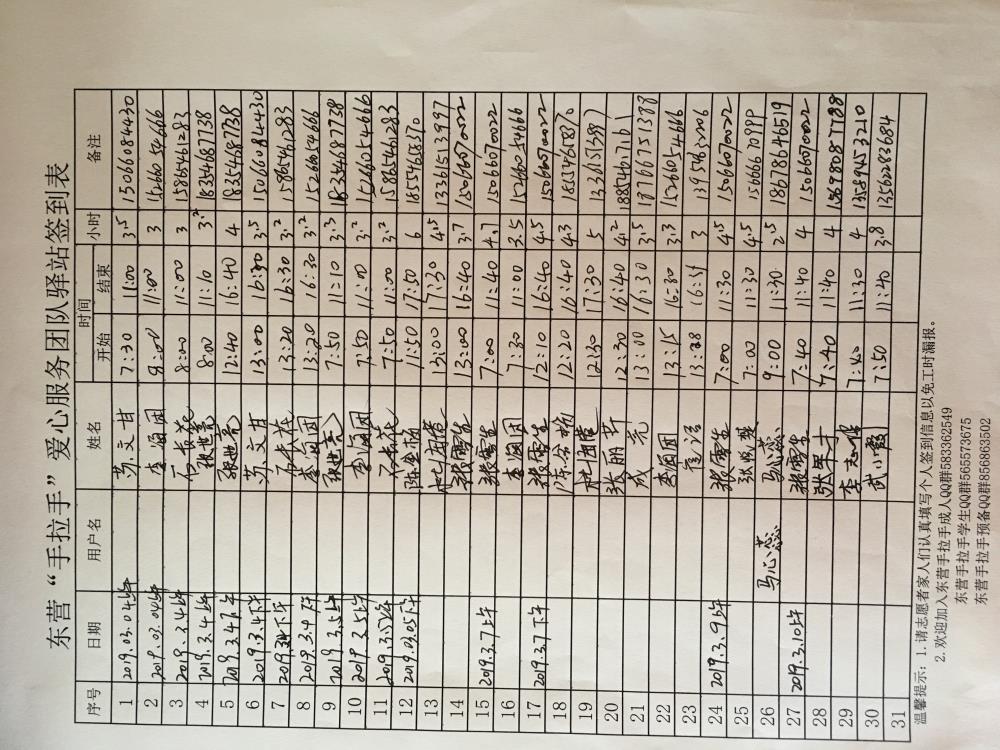 东营“手拉手”爱心服务团队驿站签到表
序号 日期 用户名 姓名 时间 小时 备注
开始 结束
1 2019.03.04上午 苏文甘 7:30 11:00 3.5 15066084430
2 2019.03.04上午 李海团 8:00 11:00 3 15266054666
3 2019.3.4上午 石长花 8:00 11:00 3 15865461283
4 2019.3.4上午 张世亮 8:00 11:10 3.2 18354687738
5 2019.3.4下午 张世亮 12:40 16:40 4 18354687738
6 2019.3.4下午 苏文甘 13:00 16:30 3.5 15066084430
7 2019.3.4下午 石长花 13:20 16:30 3.2 15865461283
8 2019.3.4下午 李海团 13:20 16:30 3.2 15266054666
9 2019.3.5上午 张世亮 7:50 11:10 3.3 18354687738
10 2019.3.5上午 李海团 7:50 11:00 3.2 15266054666
11 2019.3.5上午 石长花 7:50 11:00 3.2 15865461283
12 2019.03.05下午 11:50 17:50 6 18554656870
13 13:00 17:30 4.5 13361513997
14 张雪生 13:00 16:40 3.7 15066070022
15 2019.3.7上午 张雪生 7:00 11:40 4.7 15066070022
16 李海团 7:30 11:00 3.5 15266054666
17 2019.3.7下午 张雪生 12:10 16:40 4.5 15066070022
18 12:20 16:40 4.3 18554656870
19 12:30 17:30 5 13361513997
20 张丽芹 12:30 16:40 4.2 18854617161
21 成芳 13:00 16:30 3.5 17766751388
22 李海团 13:15 16:30 3.3 15266054666
23 13:28 3
24 2019.3.9上午 张雪生 7:00 11:30 4.5 15066070022
25 7:00 11:30 4.5
26 马心蕊 马心蕊 9:00 11:30 2.5 18678646519
27 2019.3.10上午 张雪生 7:40 11:40 4 15066070022
28 7:40 11:40 4
29 7:40 11:30 4 13589453210
30 武小霞 7:50 11:40 3.8 13562283684
31
温馨提示：1.请志愿者家人们认真填写个人签到信息以免工时漏报。
2.欢迎加入东营手拉手成人QQ群583362549
东营手拉手学生QQ群565573675
东营手拉手预备QQ群856863502